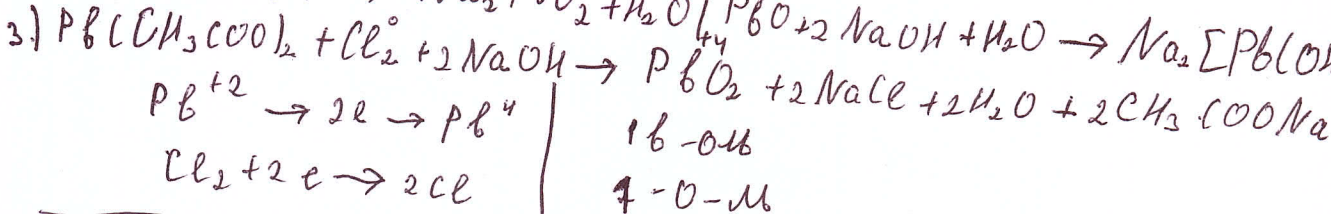 2 + H2O | PbO + 2 NaOH + H2O → Na2 [Pb(O
3.) Pb(CH3COO)2 + Cl2⁰ + 2 NaOH → Pb⁺⁴O2 + 2 NaCl + 2H2O + 2CH3COONa
Pb⁺² → 2e → Pb⁴
Cl2 + 2e → 2Cl
1 в-ль
1 - О-ль